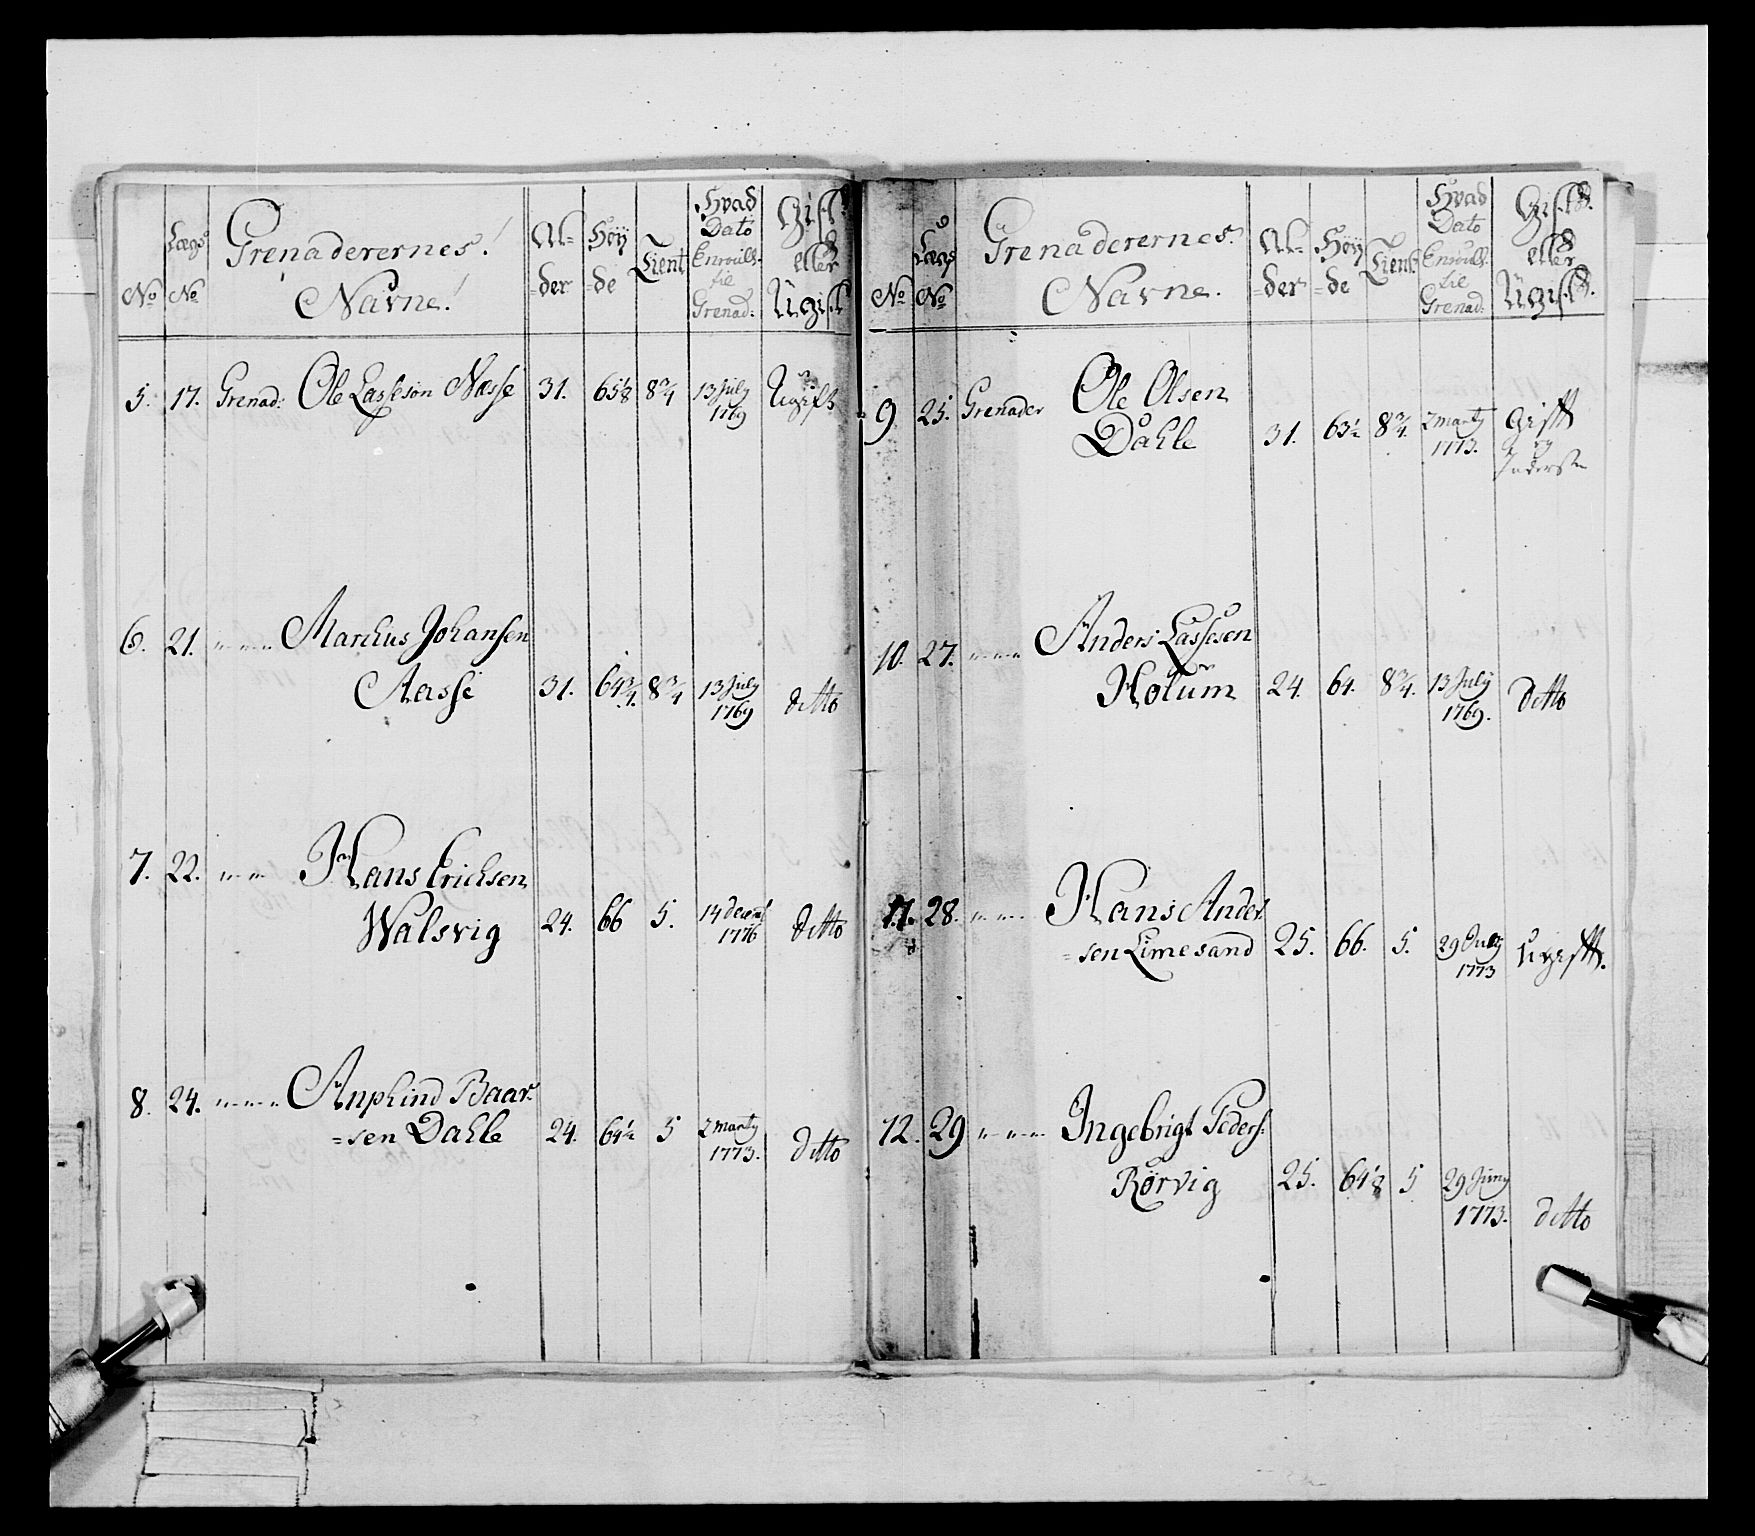 No
Lægs No
Grenaderernes Navne!
Al=der
Høy=de
Tient
Hvad Dato Enroull: til Grenad:
Gift eller Ugift
5. 17. Grenad: Ole Lasseson Næsse 31. 65 1/8 8 3/4 13 July 1769 Ugift
6. 21. " " " Marchus Johansen
Aasse 31. 64 3/4. 8 3/4 13 July 1769 ditto
7. 22. " " Hans Erichsen
Walsvig 24. 66 5. 14 decem 1776 ditto
8. 24. " " " Anphind Baar=
=sen Dahle 24. 64 1/2 5 2 marty 1773. ditto
No
Lægs No
Grenaderernes Navne.
Al=der
Høy=de
Tient
Hvad Dato Enroull: til Grenad:
Gift eller Ugift.
9. 25. Grenader Ole Olsen
Dahle 31. 63 1/2 8 3/4. 2 marty 1773. Gift og Inderste
10. 27. " " " Anders Lassesen
Holum 24. 64. 8 3/4. 13 July 1769. ditto
11. 28. " " " Hans Ander
=sen Limesand 25. 66. 5. 29 July 1773 Ugift.
12. 29 " " " Ingebrigt Peders:
Rørvig 25. 64 1/8 5 29 Juny 1773. ditto